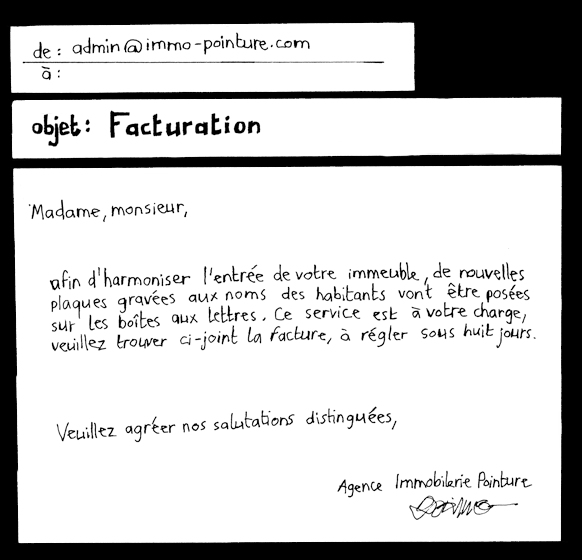 de : admin@immo-pointure.com
à :
objet: Facturation
Madame, monsieur,
afin d'harmoniser l'entrée de votre immeuble, de nouvelles
plaques gravées aux noms des habitants vont être posées
sur les boîtes aux lettres. Ce service est à votre charge,
veuillez trouver ci-joint la facture, à régler sous huit jours.
Veuillez agréer nos salutations distinguées,
Agence Immobilerie Pointure